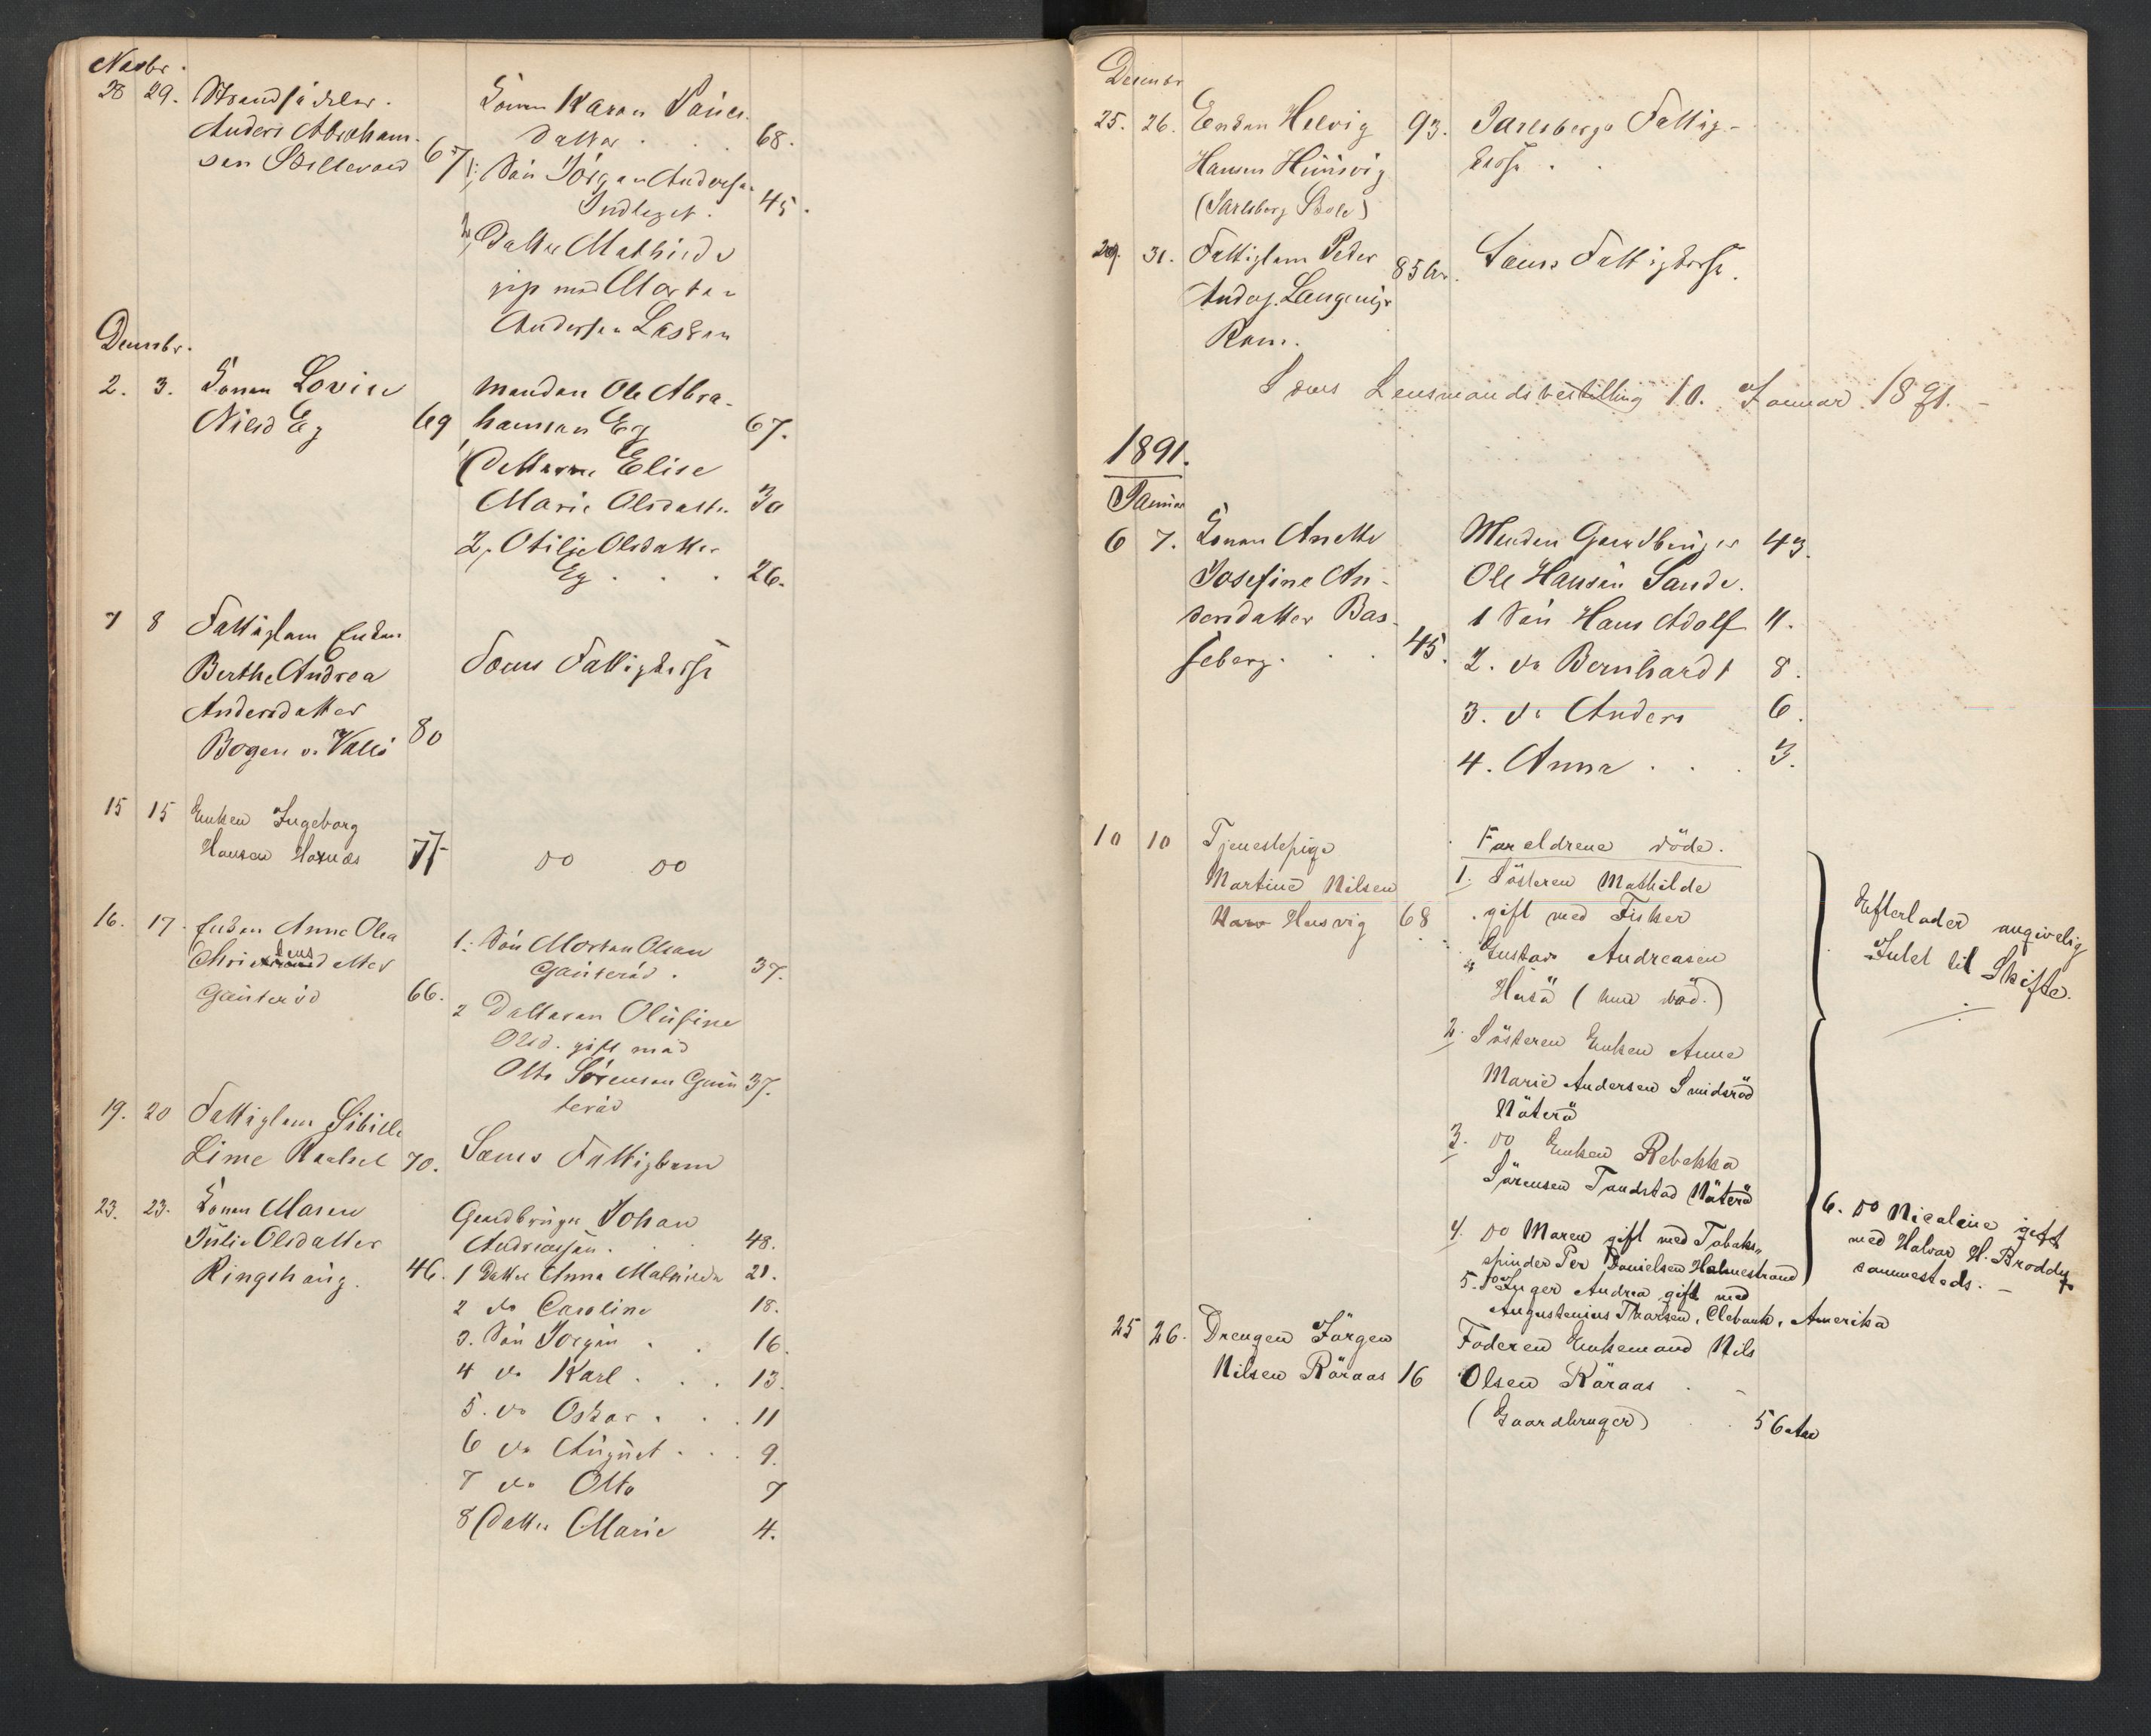 Novbr.
28 29. Strandsidder
Anders Abraham-
sen Stillevoed 67
Konen Karen Paües-
datter . . . 68.
1, Sön Jörgen Anderse.
Indlaget. 45.
2, Datter Mathilde
gift med Morten
Andersen Lasken
Decembr.
2. 3. Konen Lovise
Nilsd Eg 69
Manden Ole Abra-
hamsen Eg 67.
1 Datteren Elise
Marie Olsdatter 30
2, Otilje Olsdatter
Eg . . . 26.
7 8 Fattiglem Enken
Berthe Andrea
Andersdatter
Bogen v. Vallö 80
Sæms Fattigkasse
15 15 Enken Ingeborg
Hansen Haxnæs 77
do do
16. 17. Enken Anne Olea
Christensdatter
Gaüteröd 66.
1. Sön Morten Olsen
Gaüteröd . 37.
2 Datteren Olüfine
Olsd. gift med
Otto Sörensen Gaü 37.
teröd
19. 20 Fattiglem Sibille
Lime 70.
Sæms Fattiglem
23. 23. Konen Maren
Jülie Olsdatter
Ringshaüg. 46.
Gaardbrüger Johan
Andreassen . . 48.
1 Datter Anna Mathilde 21.
2 do Caroline 18.
3. Sön Jörgen . . 16.
4 do Karl . . . 13.
5. do Oskar . . . 11
6 do Aügüst . . . 9.
7 do Otto 7
8 Datter Marie 4.
Decembr
25. 26. Enken Helvig 93.
Hansen Hüüsvig
(Jarlsberg Bole)
Jarlsbergs Fattig-
kasse . .
29. 31. Fattiglem Peder
Anders. Langevigs 85 Aar.
Ram.
Sæms Fattigkasse.
Sæms Lensmandsbestilling 10. Januar 1891. –
1891.
Januar
6 7. Konen Anette
Josefine An-
dersdatter Bas-
seberg. . . 45.
Manden Gaardbrüger 43.
Ole Hansen Sande.
1 Sön Hans Adolf 11.
2. do Bernhardt 8.
3. do Anders 6.
4. Anna . . . 3.
10 10 Tjenestepige
Martine Nilsen
Husvig 68
Foreldrene döde.
1. Sösteren Mathilde
gift med Fisker
Gustav Andreasen
Husö (hun död.)
2. Sösteren Enken Anne
Marie Andersen Smidsröd
Nöterö
3. do Enken Rebekka
Sörensen Tandstad Nöterö
4. do Maren gift med Tobaks-
spinder Per Danielsen Holmestrand
5. do Inger Andrea gift med
Augustenius Thorsen, Clebank, Amerika
Efterlader angivelig
Intet til Skifte.
6. do Nicoline gift
med Halvor H. Brodday
sammesteds. –
25 26. Drengen Jörgen
Nilsen Röraas 16
Faderen Enkemand Nils
Olsen Röraas . –
(Gaardbruger) . . 56 Aar